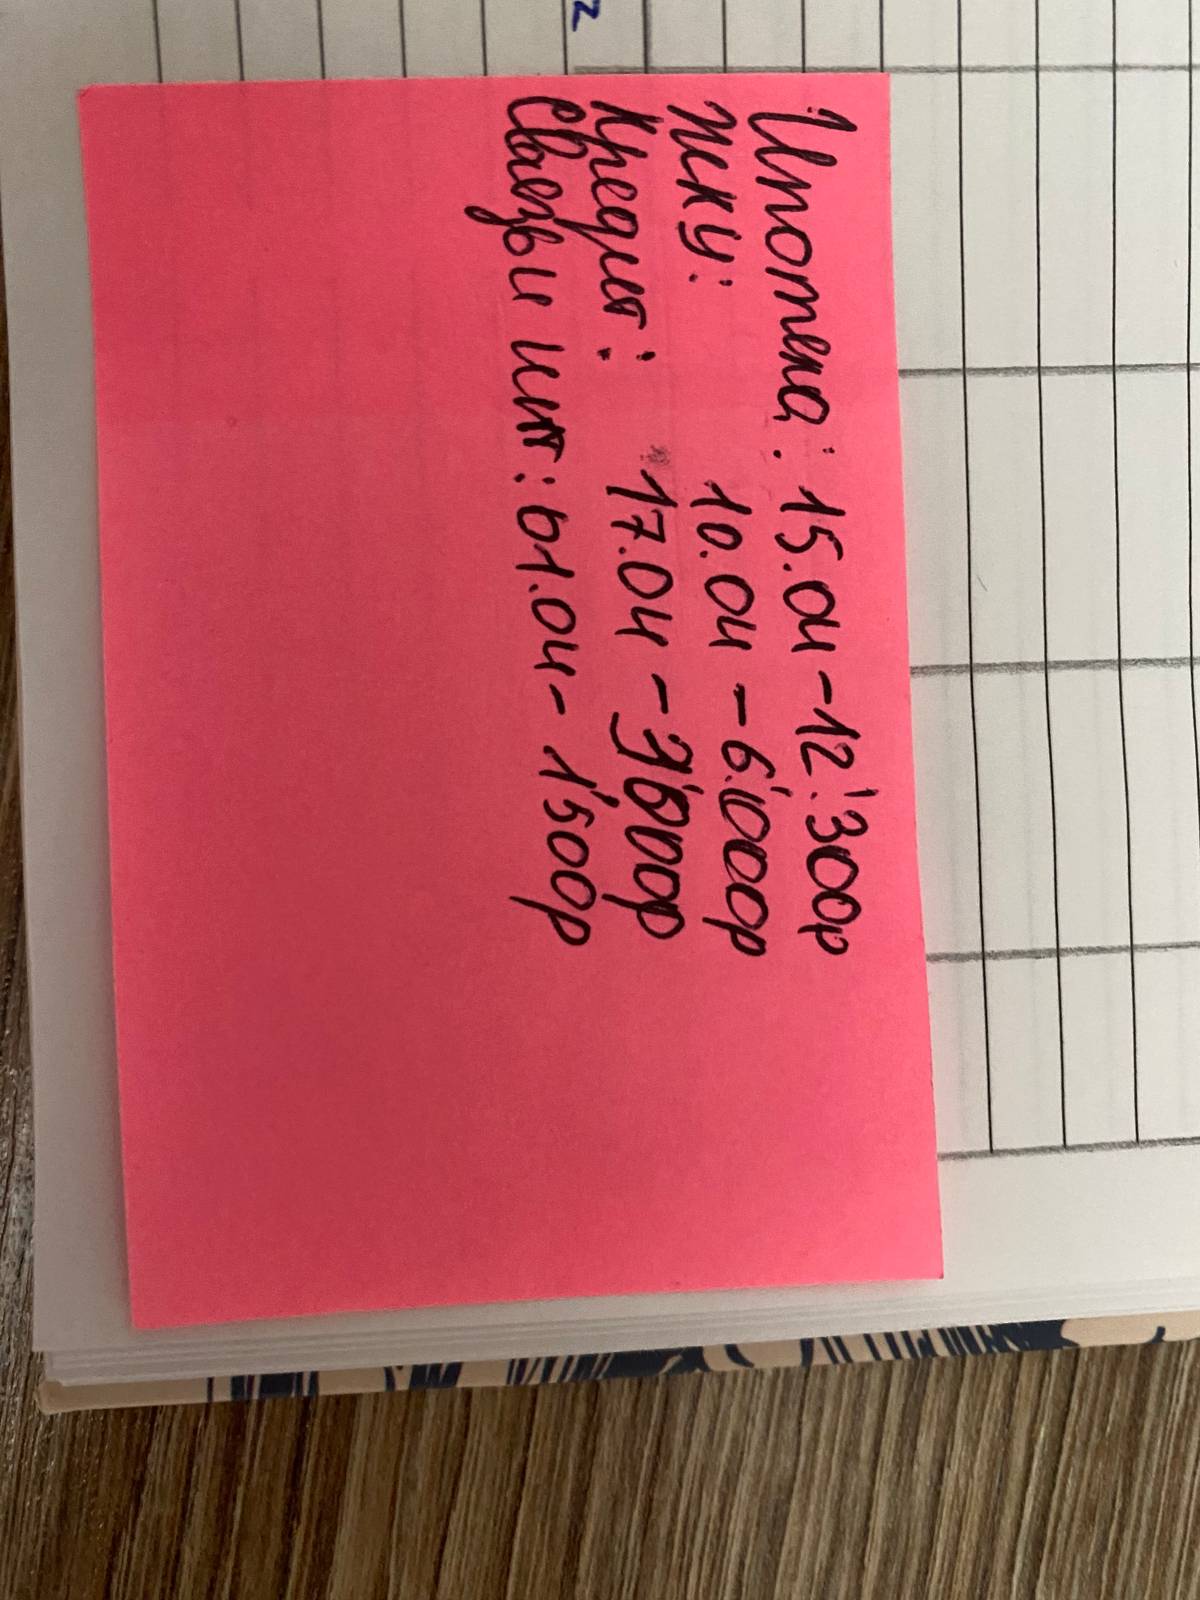 Ипотека: 15.04-12'300р
ЖКУ: 10.04-6'000р
Кредит: 17.04-3'000р
Связь и инт: 01.04-1'500р